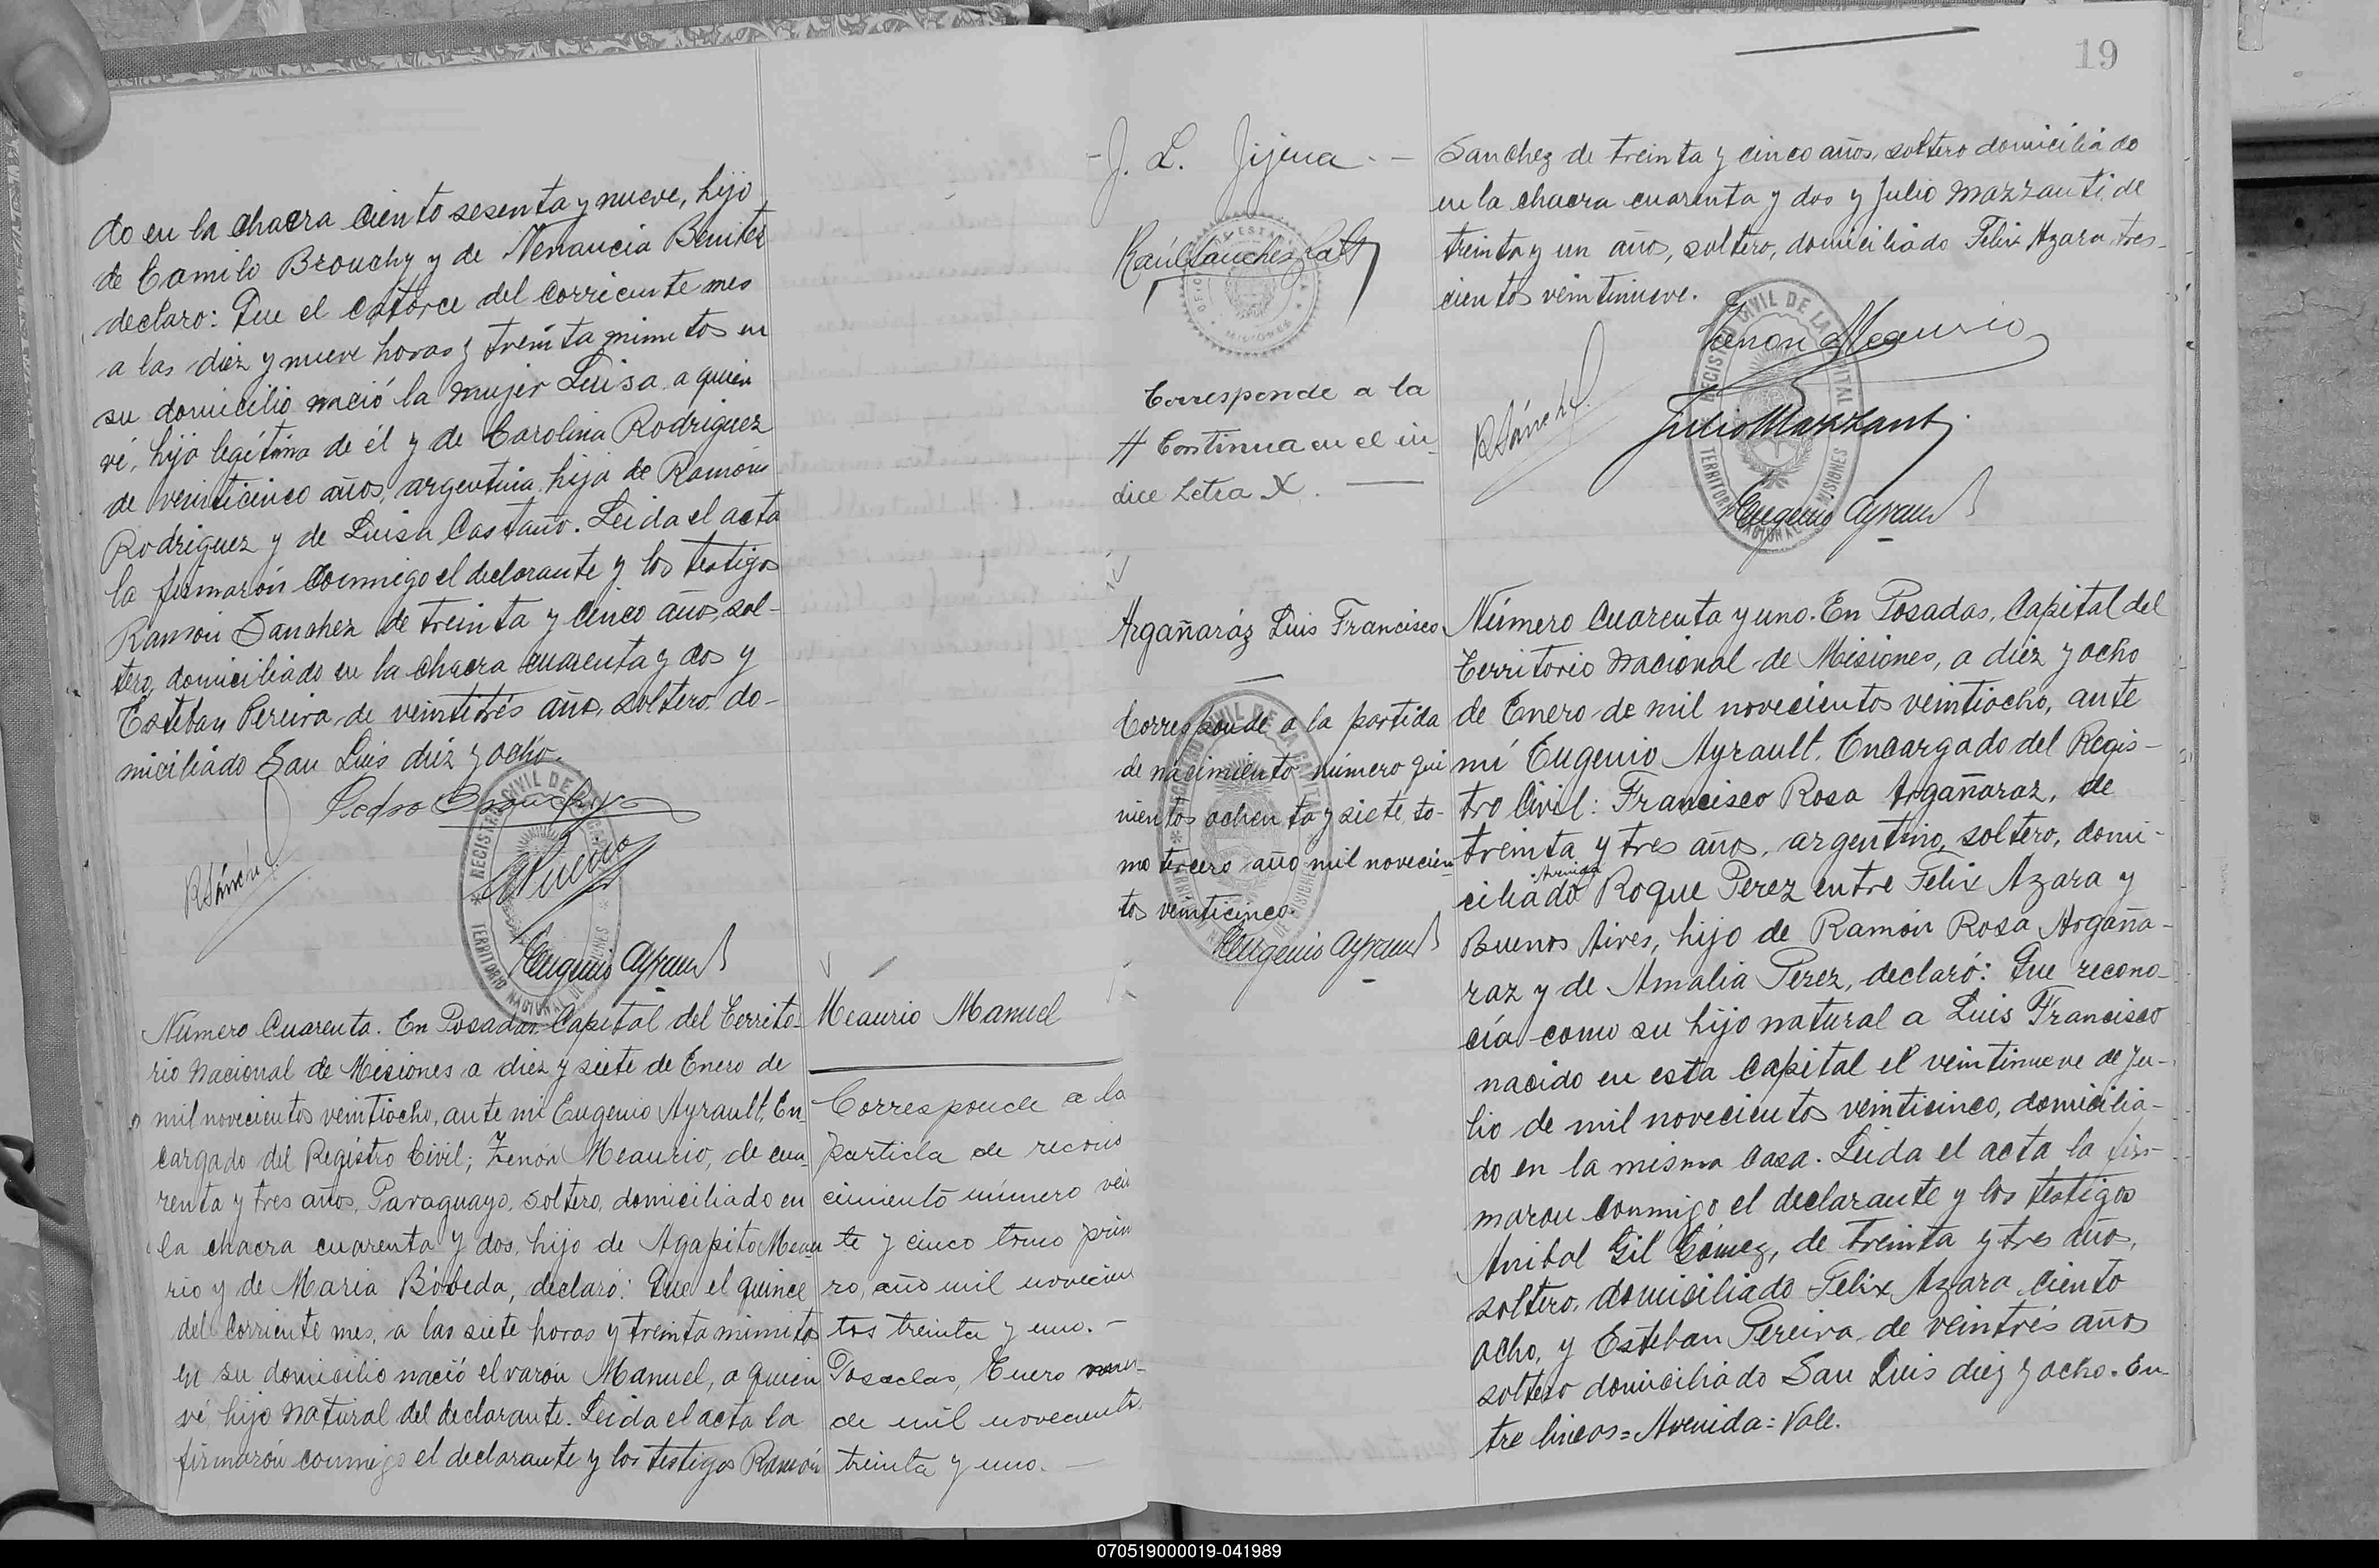 do en la chacra ciento sesenta y nueve, hijo
de Camilo Brouchy y de Venancia Benitez
declaro: Que el catorce del corriente mes
a las diez y nueve horas y treinta minutos en
su domicilio nació la mujer Luisa a quien
ví, hija legítima de él y de Carolina Rodriguez
de veinticinco años, argentina, hija de Ramón
Rodriguez y de Luisa Castaño. Leida el acta
la firmarón conmigo el declarante y los testigos
Ramón Sanchez de treinta y cinco años, sol-
tero, domiciliado en la chacra cuarenta y dos y
Esteban Pereira de veintitrés años, soltero, do-
miciliado San Luis diez y ocho.
Pedro Brouchy
R Sánchez
Eugenio Ayrault
REGISTRO CIVIL DE LA CAPITAL
TERRITORIO NACIONAL DE MISIONES
Número Cuarenta. En Posadas, Capital del Territo-
rio Nacional de Misiones a diez y siete de Enero de
mil novecientos veintiocho, ante mí Eugenio Ayrault, En-
cargado del Registro Civil; Zenón Meaurio, de cua-
renta y tres años, Paraguayo, soltero, domiciliado en
la chacra cuarenta y dos, hijo de Agapito Meau
rio y de Maria Bóbeda, declaró: Que el quince
del corriente mes, a las siete horas y treinta minutos
en su domicilio nació el varón Manuel, a quien
ví, hijo natural del declarante. Leida el acta la
firmarón conmigo el declarante y los testigos Ramón
Meaurio Manuel
Corresponde a la
partida de recono
cimiento número vein
te y cinco tomo prim
ro, año mil novecien
tos treinta y uno. -
Posadas, Enero
de mil novecientos
treinta y uno. -
19
- J. L. Jijena. -
Raúl Sanchez Ratti
Corresponde a la
// Continua en el in
dice Letra X. -
Sanchez de treinta y cinco años, soltero domiciliado
en la chacra cuarenta y dos y Julio Mazzanti, de
treinta y un años, soltero, domiciliado Felix Azara tres-
cientos veintinueve.
Zenon Meaurio
R Sánchez
Julio Mazzanti
Eugenio Ayrault
REGISTRO CIVIL DE LA CAPITAL
TERRITORIO NACIONAL DE MISIONES
Argañaráz Luis Francisco
Corresponde a la partida
de nacimiento número qui
nientos ochenta y siete, to-
mo tercero año mil novecien
tos veinticinco.
Eugenio Ayrault
Número Cuarenta y uno. En Posadas, Capital del
Territorio Nacional de Misiones, a diez y ocho
de Enero de mil novecientos veintiocho, ante
mí Eugenio Ayrault, Encargado del Regis-
tro Civil: Francisco Rosa Argañaraz, de
treinta y tres años, argentino, soltero, domi-
Avenida
ciliado Roque Perez entre Felix Azara y
Buenos Aires, hijo de Ramón Rosa Argaña-
raz y de Amalia Perez, declaró: Que recono-
cía como su hijo natural a Luis Francisco
nacido en esta Capital el veintinueve de Ju-
lio de mil novecientos veinticinco, domicilia-
do en la misma Casa. Leida el acta la fir-
maron conmigo el declarante y los testigos
Anibal Gil Gómez, de treinta y tres años,
soltero, domiciliado Felix Azara ciento
ocho, y Esteban Pereira de veintrés años
soltero domiciliado San Luis diez y ocho. En-
tre lineas = Avenida = Vale.
070519000019-041989